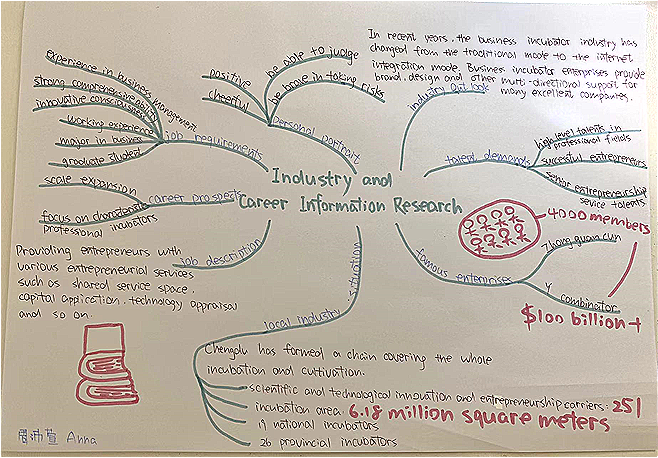 Industry and
Career Information Research
experience in business management
strong comprehensive ability
innovative consciousness
working experience
major in business
graduate student
job requirements
positive
cheerful
be able to judge
be brave in taking risks
personal portrait
In recent years, the business incubator industry has
changed from the traditional mode to the internet
integration mode. Business incubator enterprises provide
brand, design and other multi-directional support for
many excellent companies.
Industry Outlook
talent demands
high level talents in
professional fields
successful entrepreneurs
senior entrepreneurship
service talents
scale expansion
career prospects
focus on
professional incubators
job description
Providing entrepreneurs with
various entrepreneurial services
such as shared service space,
capital application, technology appraisal
and so on.
famous enterprises
Zhong guan cun
4000 members
Y combinator
$100 billion+
local industry situation
Chengdu has formed a chain covering the whole
incubation and cultivation.
scientific and technological innovation and entrepreneurship carriers: 251
incubation area: 6.18 million square meters
19 national incubators
26 provincial incubators
Anna